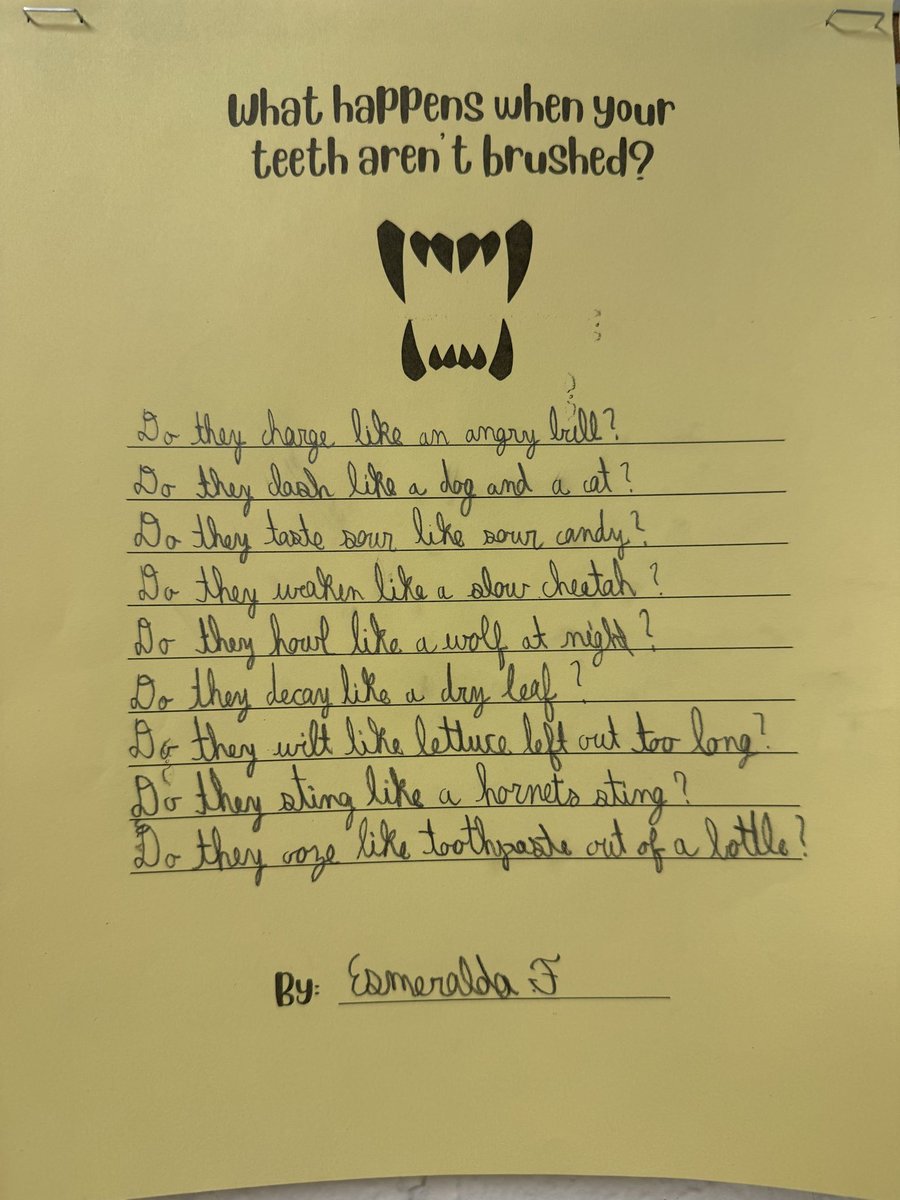 What happens when your
teeth aren't brushed?
Do they charge like an angry bull?
Do they dash like a dog and a cat?
Do they taste sour like sour candy?
Do they weaken like a slow cheetah?
Do they howl like a wolf at night?
Do they decay like a dry leaf?
Do they wilt like lettuce left out too long?
Do they sting like a hornets sting?
Do they ooze like toothpaste out of a bottle?
By: Esmeralda F